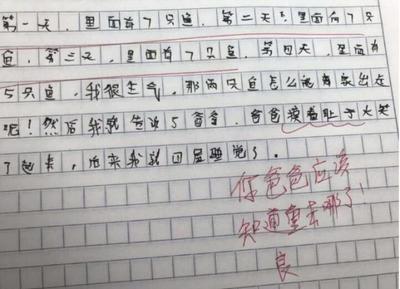 第一天，里面有7只鱼，第二天，里面有7只
鱼，第三天，里面有7只鱼，第四天，里面有
5只鱼，我很生气，那两只鱼怎么出走
呢！然后我就告诉了爸爸，爸爸摸着肚子大笑
了起来，后来我就回屋睡觉了。
你爸爸应该
知道鱼去哪了！
良